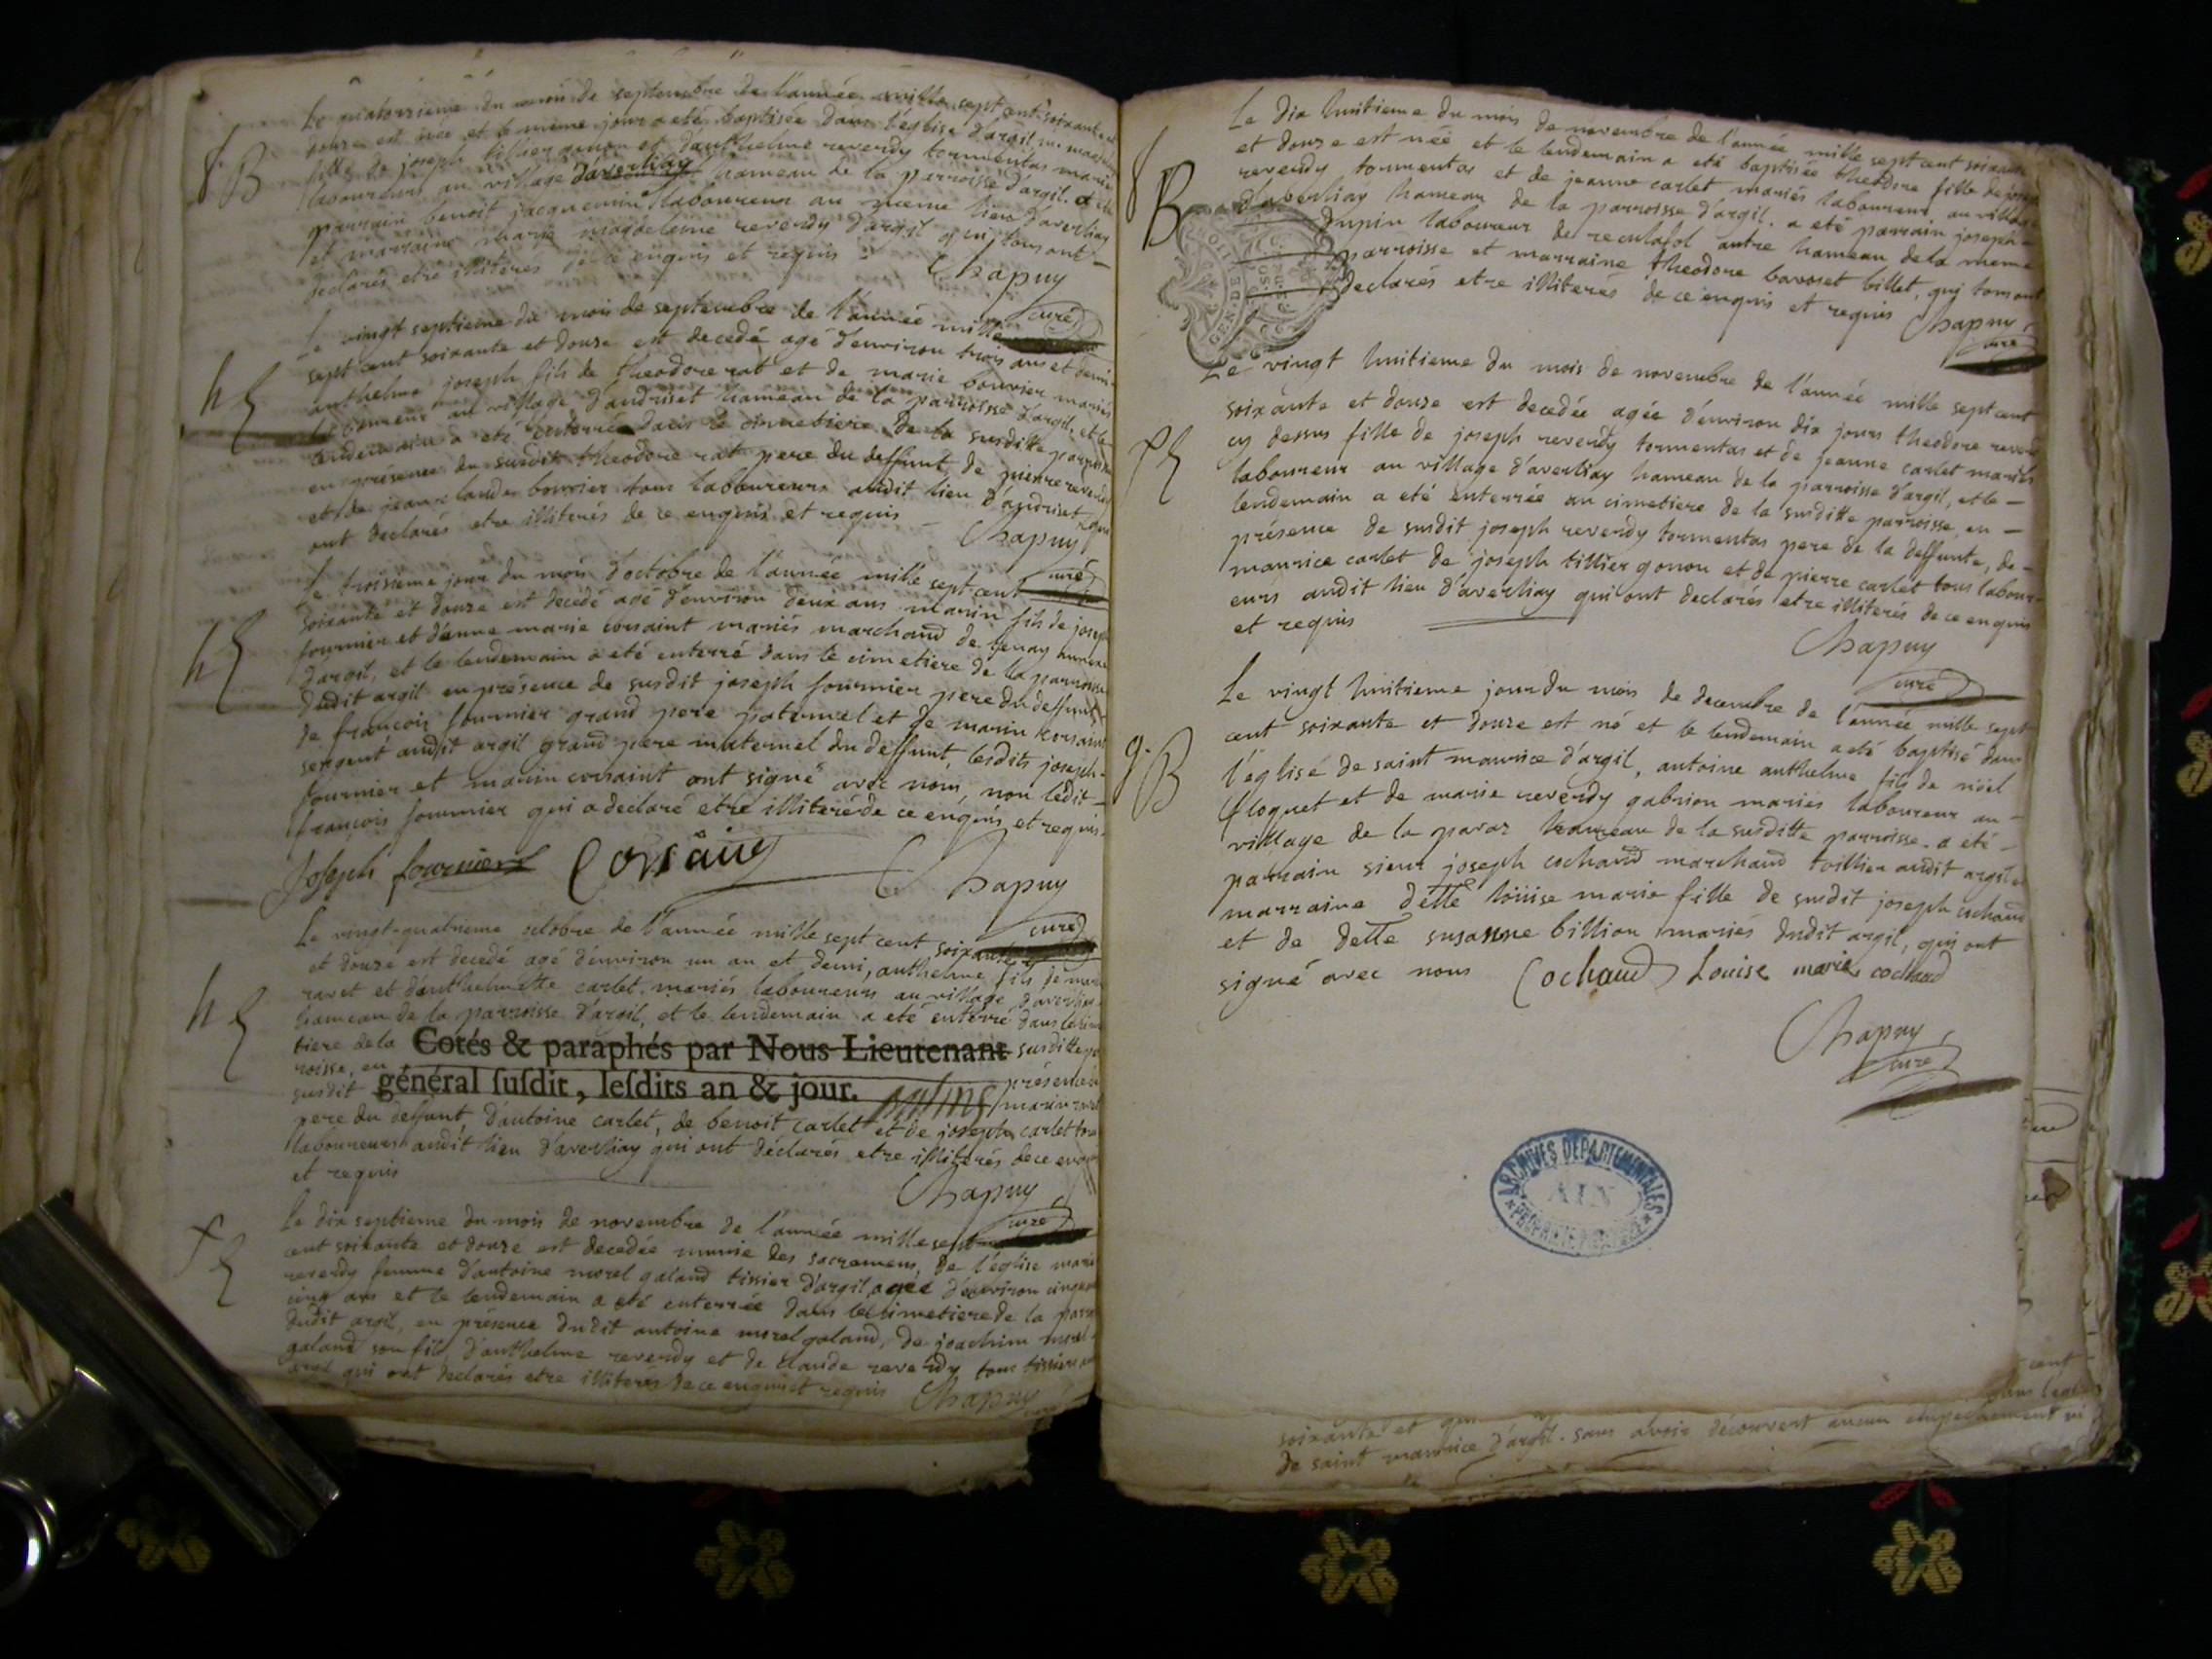 Le quatorzieme du mois de septembre de l'année mille sept cent soixante et
douze est née et le même jour a eté baptisée dans l'église d'argil
fille de joseph tillier gonon et d'anthelme reverdy tormentas mariés
8. B
laboureurs au village d'averliay hameau de la parroisse d'argil. a eté
parrain benoit jacquemin laboureur au meme lieu d'averliay
et marraine marie magdeleine reverdy d'argil qui tous ont
declarés etre illiterés de ce enquis et requis
Chapuy
curé
Le vingt septieme du mois de septembre de l'année mille
sept cent soixante et douze est decedé agé d'environ trois ans et demi
h
anthelme joseph fils de theodore rat et de marie bouvier mariés
laboureurs au village d'andriset hameau de la parroisse d'argil, et le
lendemain a eté enterré dans le cimetiere de la susditte parroisse
en présence du susdit theodore rat pere du deffunt, de pierre reverdy
et de jean claude bouvier tous laboureurs audit lieu d'andriset qui
ont declarés etre illiterés de ce enquis et requis
Chapuy
curé
Le troisieme jour du mois d'octobre de l'année mille sept cent
soixante et douze est decedé agé d'environ deux ans marin fils de joseph
h
fournier et d'anne marie corsaint mariés marchand de tenay annexe
d'argil, et le lendemain a eté enterré dans le cimetiere de la parroisse
dudit argil en présence de susdit joseph fournier pere du deffunt
de francois fournier grand pere paternel et de marin corsaint
sergent audit argil grand pere maternel du deffunt, lesdits joseph
fournier et marin corsaint ont signé avec nous, non ledit
francois fournier qui a declaré etre illiteré de ce enquis et requis.
Joseph fournier Corsaint
Chapuy
curé
Le vingt-quatrieme octobre de l'année mille sept cent soixante
et douze est decedé agé d'environ un an et demi, anthelme fils de marin
ravet et d'anthelmette carlet mariés laboureurs au village d'averliay
h
hameau de la parroisse d'argil, et le lendemain a eté enterré dans le cime
tiere de la Cotés & paraphés par Nous Lieutenant susditte par
roisse, en
susdit général susdit, lesdits an & jour. présence de
marin ravet
pere du deffunt, d'antoine carlet, de benoit carlet et de joseph carlet tous
laboureurs audit lieu d'averliay qui ont déclarés etre illiterés de ce enquis
et requis
Chapuy
curé
Le dix septieme du mois de novembre de l'année mille sept
cent soixante et douze est decedée munie des sacremens, de l'église marie
reverdy femme d'antoine morel galand tissier d'argil agée d'environ cinquante
cinq ans et le lendemain a eté enterrée dans le cimetiere de la parroisse
dudit argil, en présence dudit antoine morel galand, de joachim morel
galand son fils d'anthelme reverdy et de claude reverdy tous tissiers
argil qui ont declarés etre illiterés de ce enquis et requis Chapuy
Le dix huitieme du mois de novembre de l'année mille sept cent soixante
et douze est née et le lendemain a eté baptisée theodore fille de joseph
8
reverdy tormentas et de jeanne carlet mariés laboureurs au village
B
d'averliay hameau de la parroisse d'argil. a eté parrain joseph
dupin laboureur de reculafol autre hameau de la meme
parroisse et marraine theodore bavoset billet, qui tous ont
declarés etre illiterés de ce enquis et requis Chapuy
curé
Le vingt huitieme du mois de novembre de l'année mille sept cent
soixante et douze est decedée agée d'environ dix jours theodore reverdy
cy dessus fille de joseph reverdy tormentas et de jeanne carlet mariés
laboureur au village d'averliay hameau de la parroisse d'argil, et le
lendemain a eté enterrée au cimetiere de la susditte parroisse, en
présence de susdit joseph reverdy tormentas pere de la deffunte, de
maurice carlet de joseph tillier gonon et de pierre carlet tous labour
eurs audit lieu d'averliay qui ont declarés etre illiterés de ce enquis
et requis
Chapuy
curé
Le vingt huitieme jour du mois de decembre de l'année mille sept
cent soixante et douze est né et le lendemain a eté baptisé dans
9. B
l'église de saint maurice d'argil, antoine anthelme fils de nöel
floquet et de marie reverdy gabrion mariés laboureur au
village de la gavaz hameau de la susditte parroisse. a eté
parrain sieur joseph cochaud marchand toillier audit argil
marraine delle loüise marie fille de susdit joseph cochaud
et de delle susanne billion mariés dudit argil, qui ont
signé avec nous Cochaud Louise marie cochaud
Chapuy
curé
ARCHIVES DEPARTEMENTALES
AIN
cent
dans l'eglise
soixante et
de saint maurice d'argil. sans avoir découvert aucun empechement ni